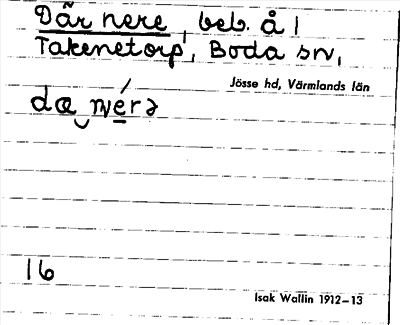 Där nere, beb. å 1
Takenetorp, Boda sn,
Jösse hd, Värmlands län
16
Isak Wallin 1912–13